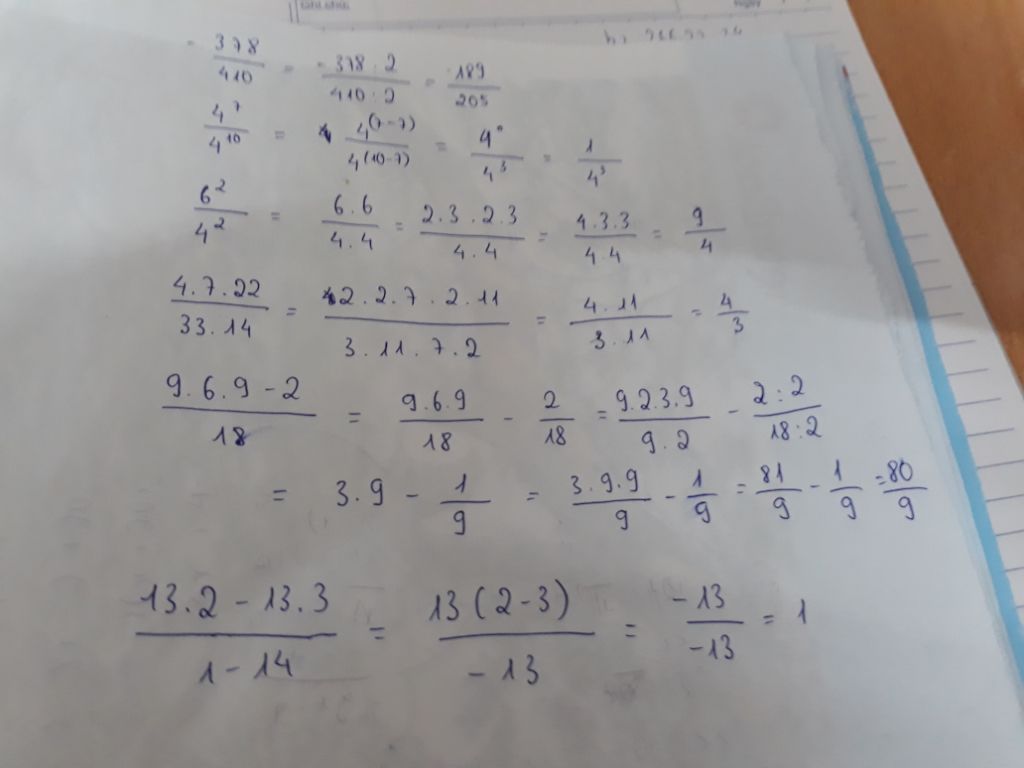 378/410 = 378 : 2/410 : 2 = 189/205
4^7/4^10 = 4^(7-7)/4^(10-7) = 4^0/4^3 = 1/4^3
6^2/4^2 = 6.6/4.4 = 2.3.2.3/4.4 = 4.3.3/4.4 = 9/4
4.7.22/33.14 = 2.2.7.2.11/3.11.7.2 = 4.11/3.11 = 4/3
9.6.9 - 2/18 = 9.6.9/18 - 2/18 = 9.2.3.9/9.2 - 2:2/18:2
= 3.9 - 1/9 = 3.9.9/9 - 1/9 = 81/9 - 1/9 = 80/9
13.2 - 13.3/1 - 14 = 13(2-3)/-13 = -13/-13 = 1